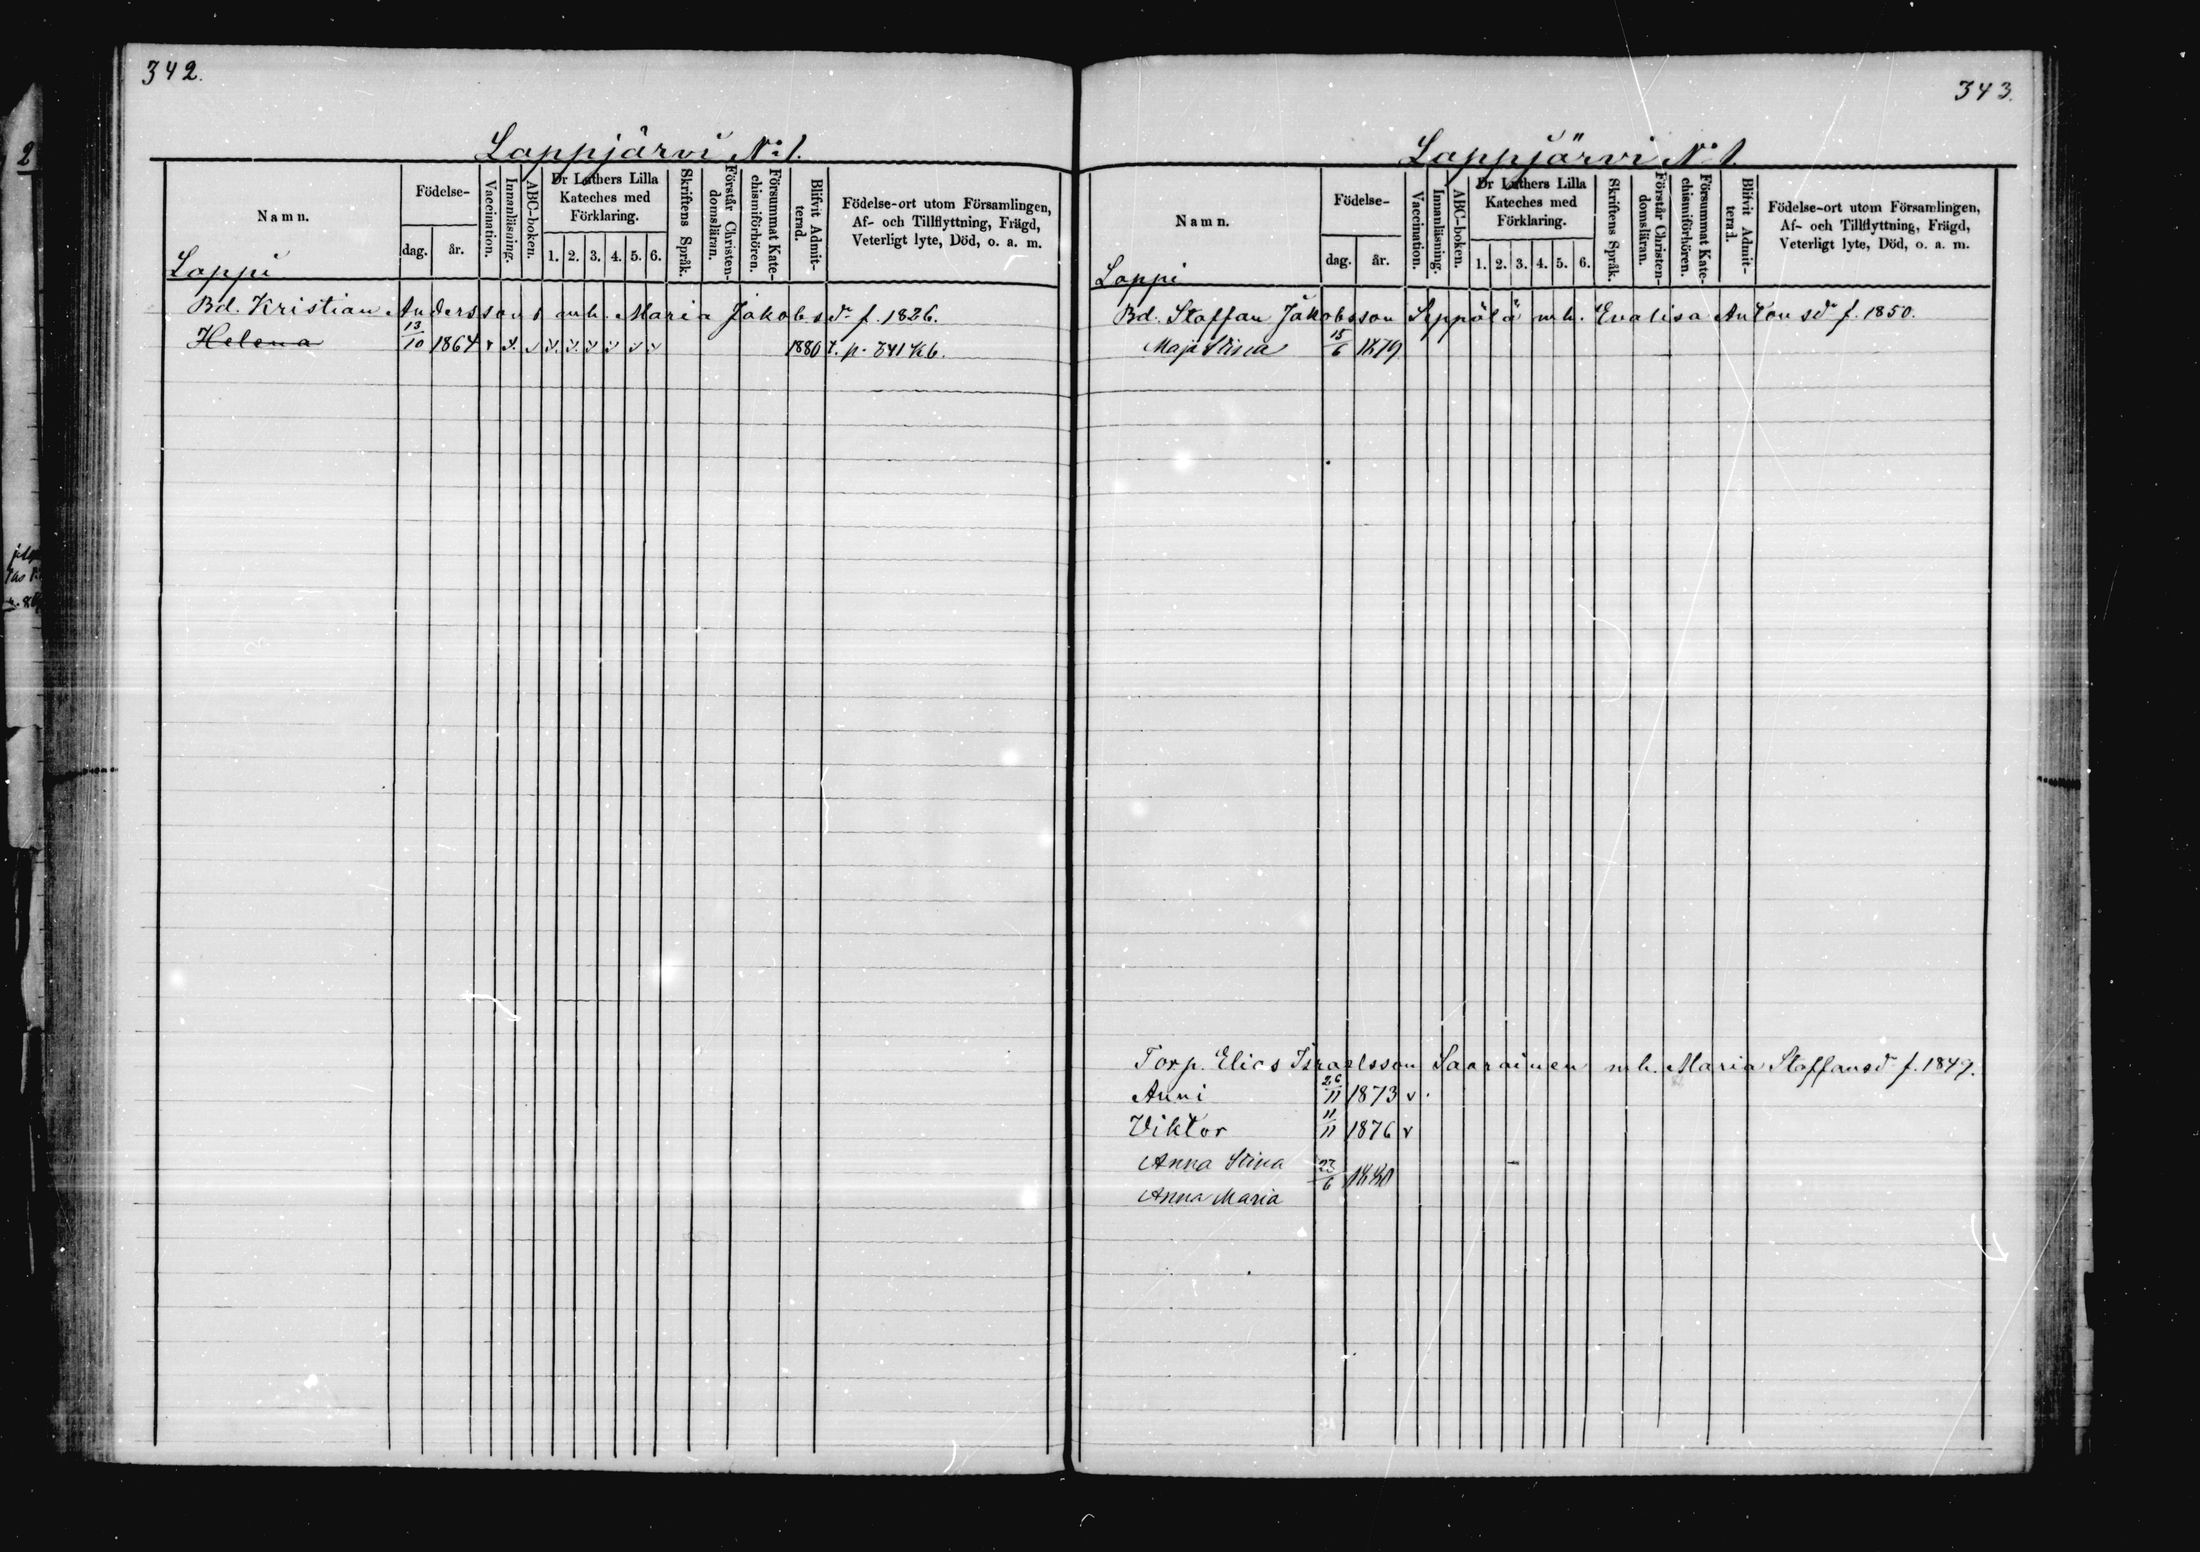 342.
Lappjärvi No 1.
Namn.
Födelse-
dag.
år.
Vaccination.
Innanläsning.
ABC-boken.
Dr Luthers Lilla
Kateches med
Förklaring.
1. 2. 3. 4. 5. 6.
Skriftens Språk.
Förstår Christen-
domsläran.
Försummat Kate-
chismiförhören.
Blifvit Admit-
terad.
Födelse-ort utom Församlingen,
Af- och Tillflyttning, Frägd,
Veterligt lyte, Död, o. a. m.
Lappi
Bd. Kristian Andersson s m.h. Maria Jakobsdr f. 1826.
Helena 13/10 1864 v v. v v. v. v v v v 1880 T. p. 341 K b.
343.
Lappjärvi No 1.
Namn.
Födelse-
dag.
år.
Vaccination.
Innanläsning.
ABC-boken.
Dr Luthers Lilla
Kateches med
Förklaring.
1. 2. 3. 4. 5. 6.
Skriftens Språk.
Förstår Christen-
domsläran.
Försummat Kate-
chismiförhören.
Blifvit Admit-
terad.
Födelse-ort utom Församlingen,
Af- och Tillflyttning, Frägd,
Veterligt lyte, Död, o. a. m.
Lappi
Bd. Staffan Jakobsson Seppälä m.h. Evalisa Antonsdr f. 1850.
Maja Stina 15/6 1879
Torp. Elias Israelsson Saarainen m.h. Maria Staffansdr f. 1849.
Anni 26/11 1873 v.
Viktor 11/11 1876 v
Anna Stina 23/6 1880
Anna Maria